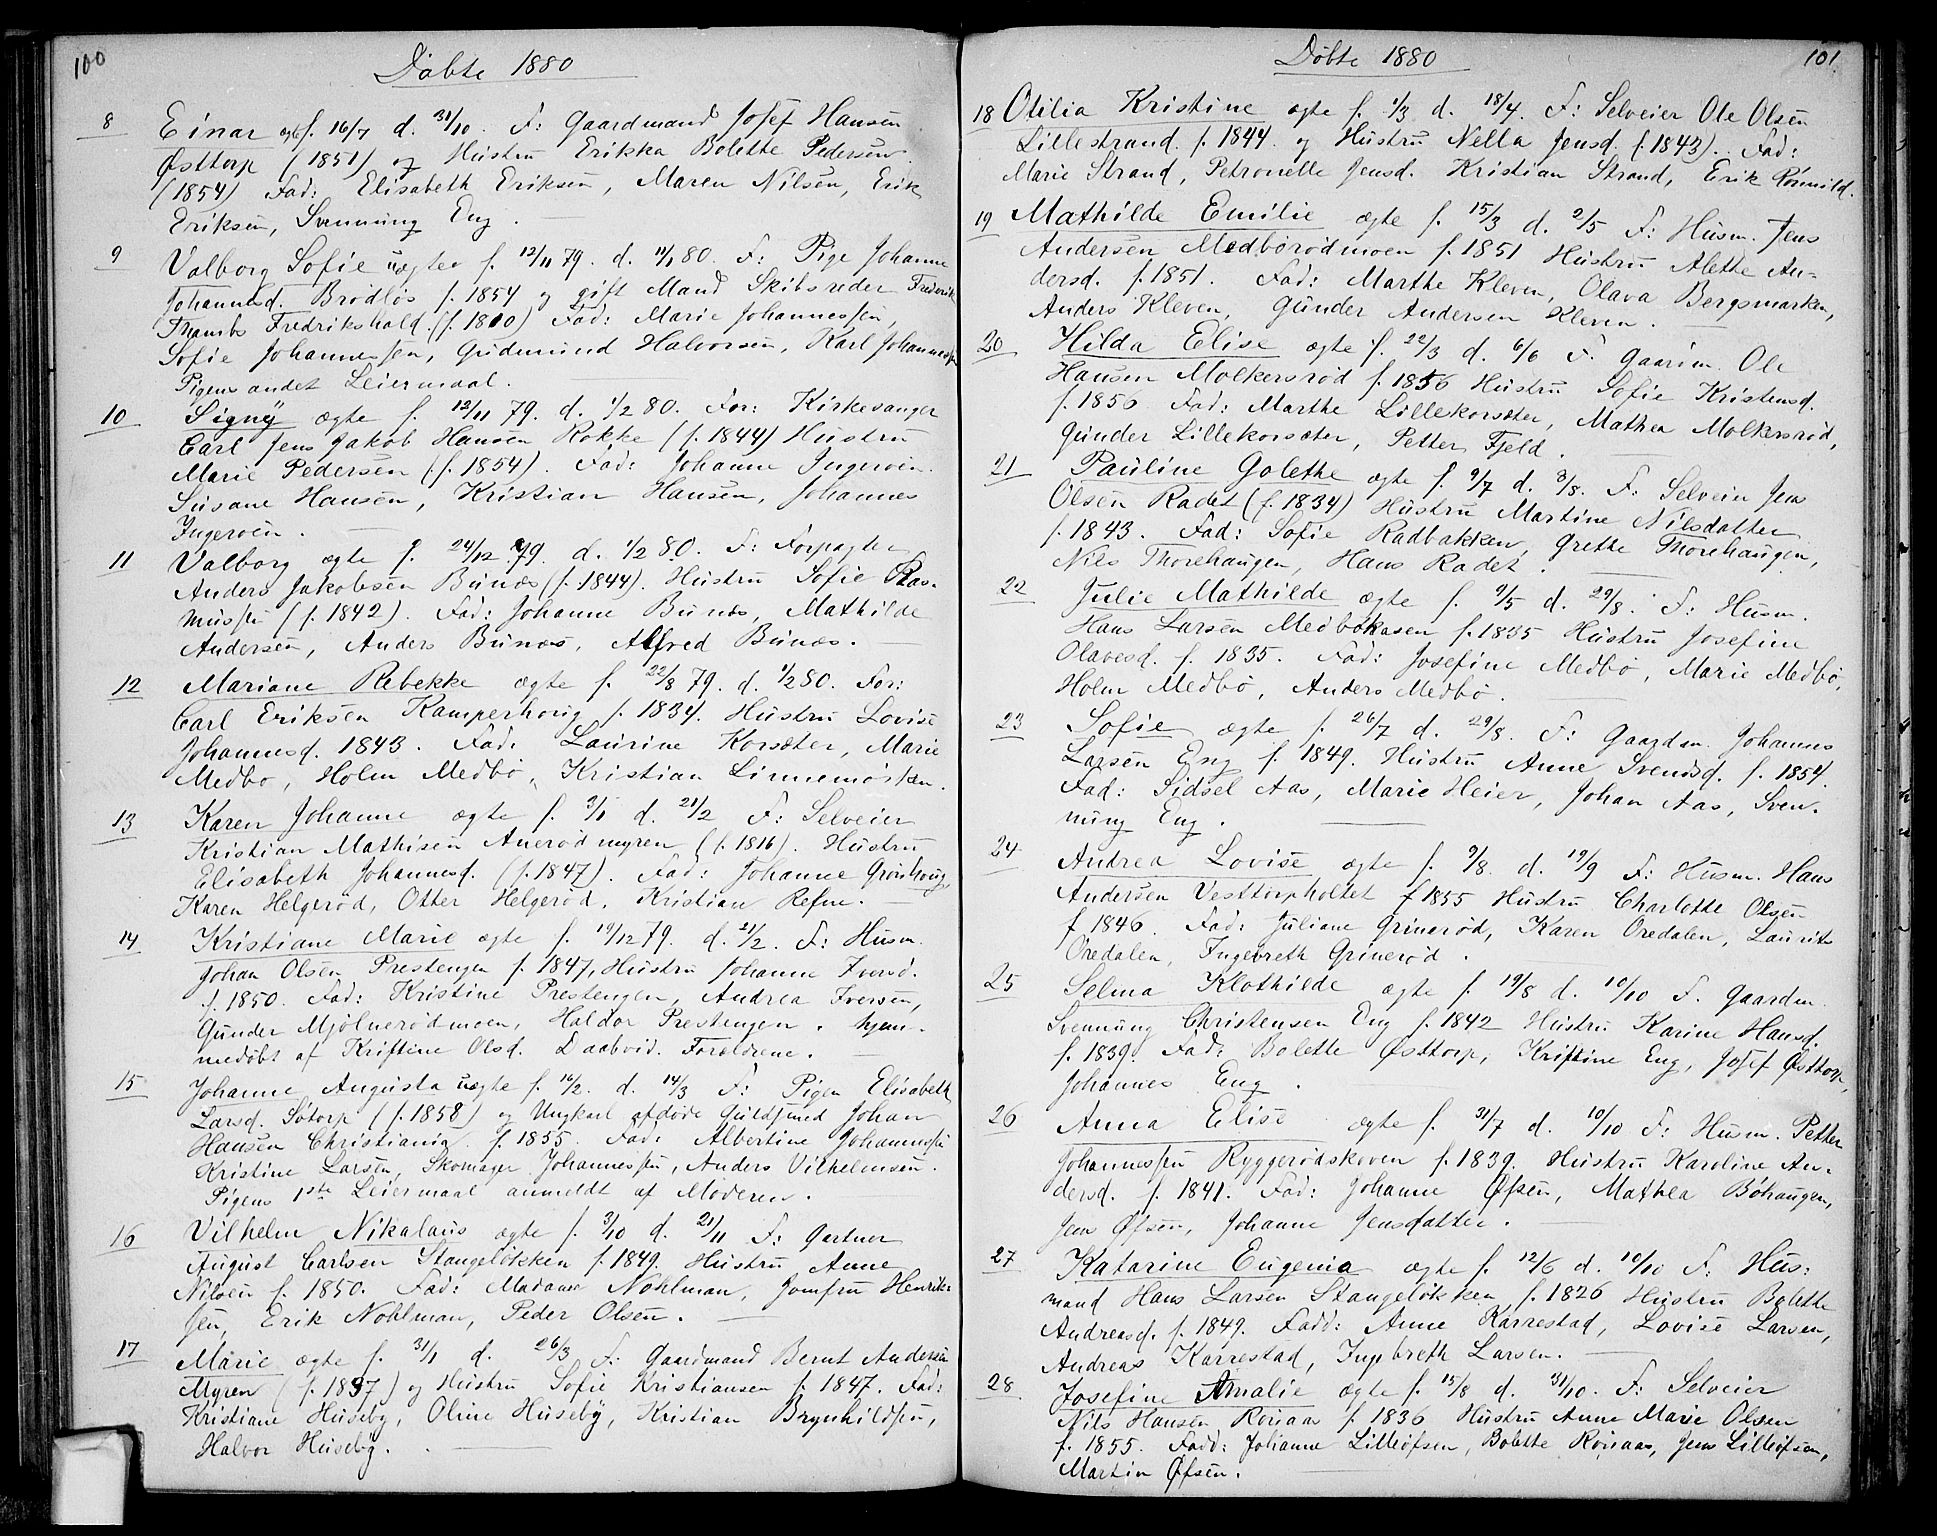 100
Döbte 1880
8 Einar ægte f. 16/7 d. 31/10. F: Gaardmand Josef Hansen
Østtorp (1851) og Hustru Erikka Bolette Pedersen
(1854) Fad: Elisabeth Eriksen, Maren Nilsen, Erik
Eriksen, Svennung Eng.
9 Valborg Sofie uægte f. 12/11 79. d. 11/1 80. F: Pige Johanne
Johannesd. Brödløs f. 1854 og gift Mand Skibsreder Frederik
Fredrikshald. (f. 1810) Fad: Marie Johannessen,
Sofie Johannessen, Gudmund Halvorsen, Karl Johannessen
Pigens andet Leiermaal.
10 Signy ægte f. 12/11 79. d. 1/2 80. For: Kirkesanger
Carl Jens Jakob Hansen Rokke (f. 1844) Hustru
Marie Pedersen (f. 1854). Fad: Johanne Ingeroen.
Susane Hansen, Kristian Hansen, Johannes
Ingeroen.
11 Valborg ægte f. 24/12 79. d. 1/2 80. F: Forpagter
Anders Jakobsen Bunæs (f. 1844). Hustru Sofie Ras-
mussen (f. 1842). Fad: Johanne Bunæs, Mathilde
Andersen, Anders Bunæs, Alfred Bunæs.
12 Mariane Rebekke ægte f. 22/8 79. d. 1/2 80. For:
Carl Eriksen Kamperhoug f. 1834. Hustru Lovise
Johannesd. 1843. Fad: Laurine Korsæter, Marie
Medbo, Holm Medbö, Kristian Linnemösten.
13 Karen Johanne ægte f. 3/1 d. 21/2 F: Selveier
Kristian Mathisen Anerödmyren (f. 1816). Hustru
Elisabeth Johannesd. (f. 1847). Fad: Johanne Grönhoug,
Karen Helgeröd, Otter Helgeröd, Kristian Refne.
14 Kristiane Marie ægte f. 19/12 79. d. 21/2. F: Husm.
Johan Olsen Prestengen f. 1847, Hustru Johanne Iversd.
f. 1850. Fad: Kristine Prestengen, Andrea Iversen,
Gunder Mjölnerödmoen, Haldor Prestengen. hjem-
medöbt af Kristine Olsd. Daabvid. Forældrene.
15 Johanne Augusta uægte f. 16/2. d. 14/3 F: Pigen Elisabeth
Larsd. Sötorp (f. 1858) og Ungkarl afdöde Guldsmed Johan
Hansen Christiania f. 1855. Fad: Albertine Johannessen
Kristine Larsen, Skomager Johannessen, Anders Vilhelmsen.
Pigens 1ste Leiermaal anmeldt af Moderen.
16 Vilhelm Nikalaus ægte f. 3/10 d. 21/11 F: Gartner
August Carlsen Stangelökken f. 1849. Hustru Anne
Nilsen f. 1850. Fad: Madame Nohlman, Jomfru Henrik-
sen, Erik Nohlman, Peder Olsen.
17 Marie ægte f. 31/1 d. 26/3 F: Gaardmand Bernt Andersen
Myren (f. 1837) og Hustru Sofie Kristiansen f. 1847. Fad:
Kristiane Huseby, Oline Huseby, Kristian Brynhildsen,
Halvor Huseby.
101
Döbte 1880
18 Otilia Kristine ægte f. 1/3 d. 18/4. F: Selveier Ole Olsen
Lillestrand f. 1844. og Hustru Nella Jensd. f. 1843). Fad:
Marie Strand, Petronelle Jensd. Kristian Strand, Erik Römild.
19 Mathilde Emilie ægte f. 15/3 d. 2/5 F: Husm. Jens
Andersen Medbörödmoen f. 1851 Hustru Alette An-
dersd. f. 1851. Fad: Marthe Kleven, Olava Bergsmarken,
Anders Kleven, Gunder Andersen Kleven.
20 Hilda Elise ægte f. 22/3 d. 6/6 F. Gaarm. Ole
Hansen Molkersröd f. 1856 Hustru Sofie Kristensd.
f. 1856. Fad: Marthe Lillekorsæter, Mathea Molkersröd,
Gunder Lillekorsæter, Petter Fjeld.
21 Pauline Golethe ægte f. 9/7 d. 8/8. F: Selveier Jens
Olsen Radet (f. 1834) Hustru Martine Nilsdatter
f. 1843. Fad: Sofie Radbakken, Grethe Thorehaugen,
Nils Thorehaugen, Hans Radet.
22 Julie Mathilde ægte f. 9/5 d. 29/8. F: Husm.
Hans Larsen Medbökasen f. 1835 Hustru Josefine
Olavesd. f. 1835. Fad: Josefine Medbö, Marie Medbö,
Holm Medbö, Anders Medbö.
23 Sofie ægte f. 26/7 d. 29/8. F: Gaardm. Johannes
Larsen Eng f. 1849. Hustru Anne Svendsd. f. 1854.
Fad: Sidsel Aas, Marie Heier, Johan Aas, Sven-
nung Eng.
24 Andrea Lovise ægte f. 9/8. d. 19/9 F: Husm. Hans
Andersen Vesttorpholtet f 1855 Hustru Charlotte Olsen
f 1846. Fad: Juliane Grineröd, Karen Oredalen, Laurits
Oredalen, Ingebreth Grineröd.
25 Selma Klothilde ægte f. 19/8 d. 10/10 F. Gaardm.
Svennung Christensen Eng f. 1842 Hustru Karine Hansd.
f. 1839. Fad: Bolette Østtorp, Kristine Eng, Josef Østtorp,
Johannes Eng.
26 Anna Elise ægte f. 31/7 d. 10/10 F: Husm. Petter
Johannessen Ryggerödskoven f. 1839. Hustru Karoline An-
dersd. f. 1841. Fad: Johanne Øfsen, Mathea Böhaugen,
Jens Øfsen, Johanne Jensdatter.
27 Katarine Eugenia ægte f. 12/6 d. 10/10 F: Hus:
mand Hans Larsen Stangelökken f. 1826 Hustru Bolette
Andreasd. f. 1849. Fadd: Anne Karrestad, Lovise Larsen,
Andreas Karrestad, Ingebreth Larsen.
28 Josefine Amalie ægte f. 15/8 d. 31/10. F: Selveier
Nils Hansen Rönaas f. 1836 Hustru Anne Marie Olsen
f. 1855. Fadd: Johanne Lilleöfsen, Bolette Rönaas, Jens Lilleöfsen,
Martin Øfsen.